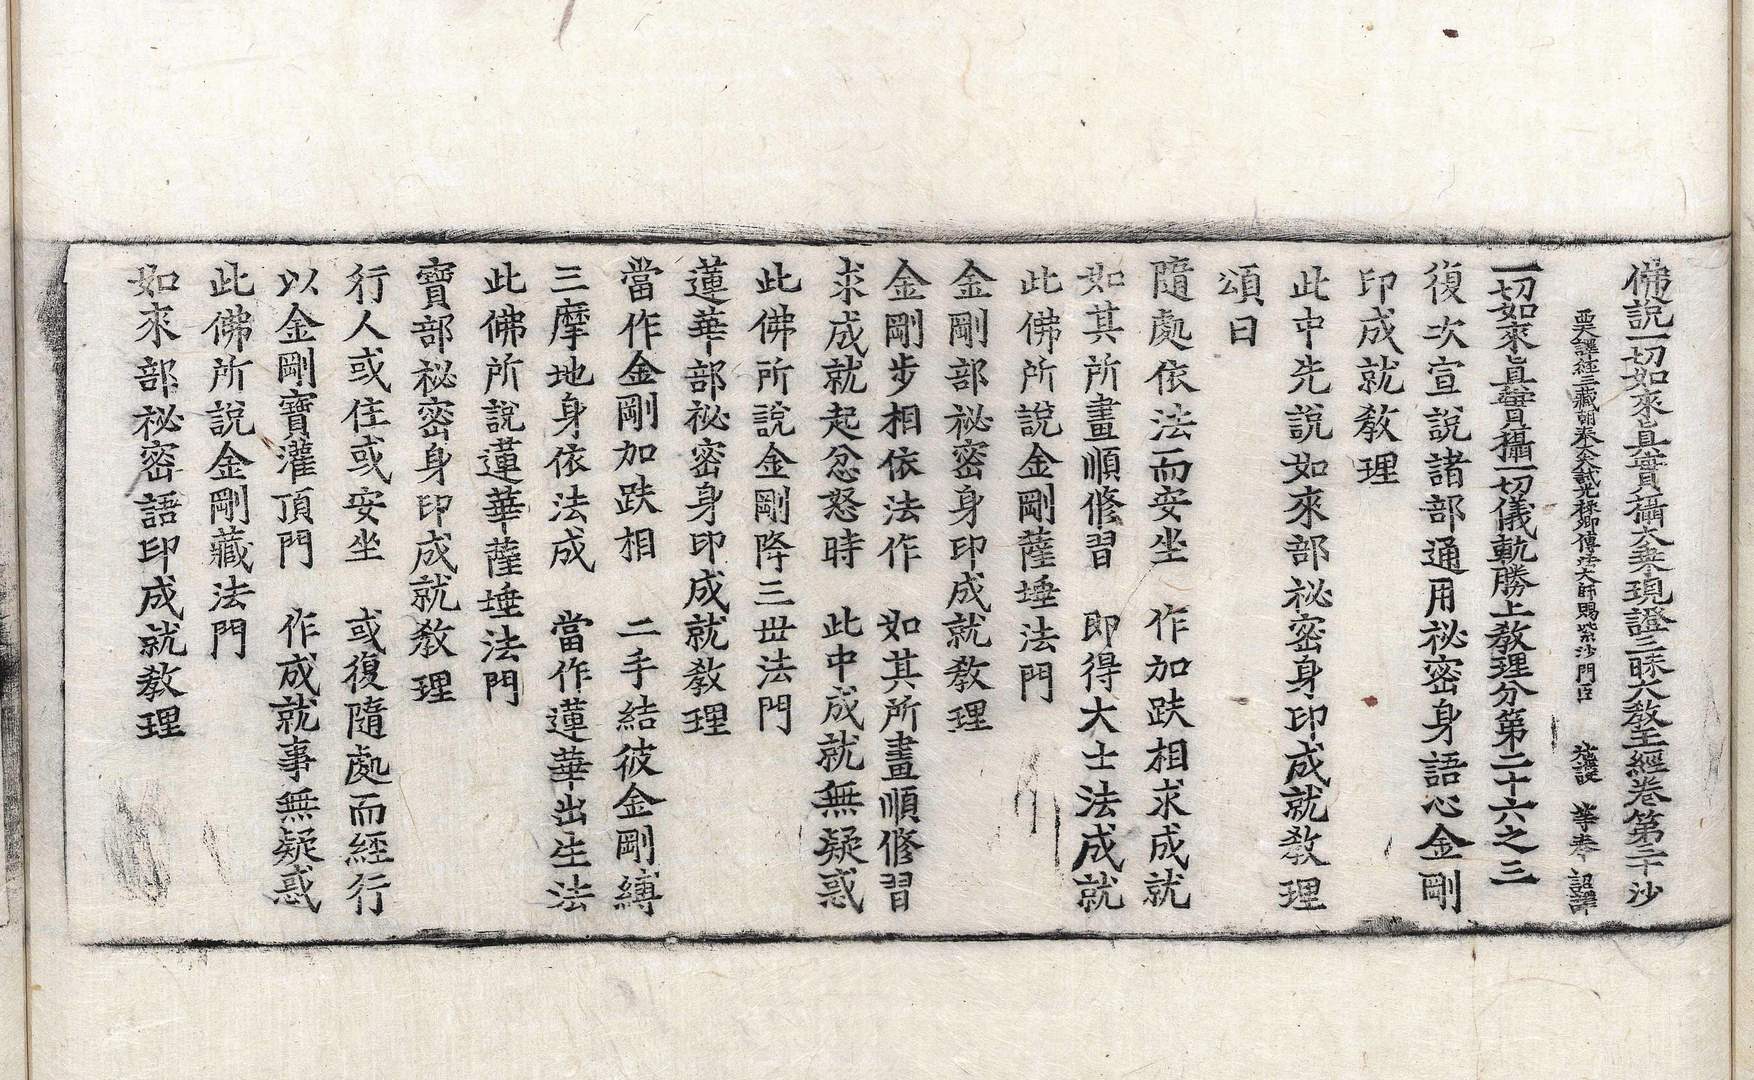 佛說一切如來眞實攝大乘現證三昧大敎王經卷第二十 沙
西天譯經三藏朝奉大夫試光祿卿傳法大師賜紫沙門臣 施護 等奉 詔譯
一切如來眞實攝一切儀軌勝上敎理分第二十六之三
復次宣說諸部通用祕密身語心金剛
印成就敎理
此中先說如來部祕密身印成就敎理
頌曰
隨處依法而安坐 作加趺相求成就
如其所畫順修習 即得大士法成就
此佛所說金剛薩埵法門
金剛部祕密身印成就敎理
金剛步相依法作 如其所畫順修習
求成就起忿怒時 此中成就無疑惑
此佛所說金剛降三世法門
蓮華部祕密身印成就敎理
當作金剛加趺相 二手結彼金剛縛
三摩地身依法成 當作蓮華出生法
此佛所說蓮華薩埵法門
寶部祕密身印成就敎理
行人或住或安坐 或復隨處而經行
以金剛寶灌頂門 作成就事無疑惑
此佛所說金剛藏法門
如來部祕密語印成就敎理